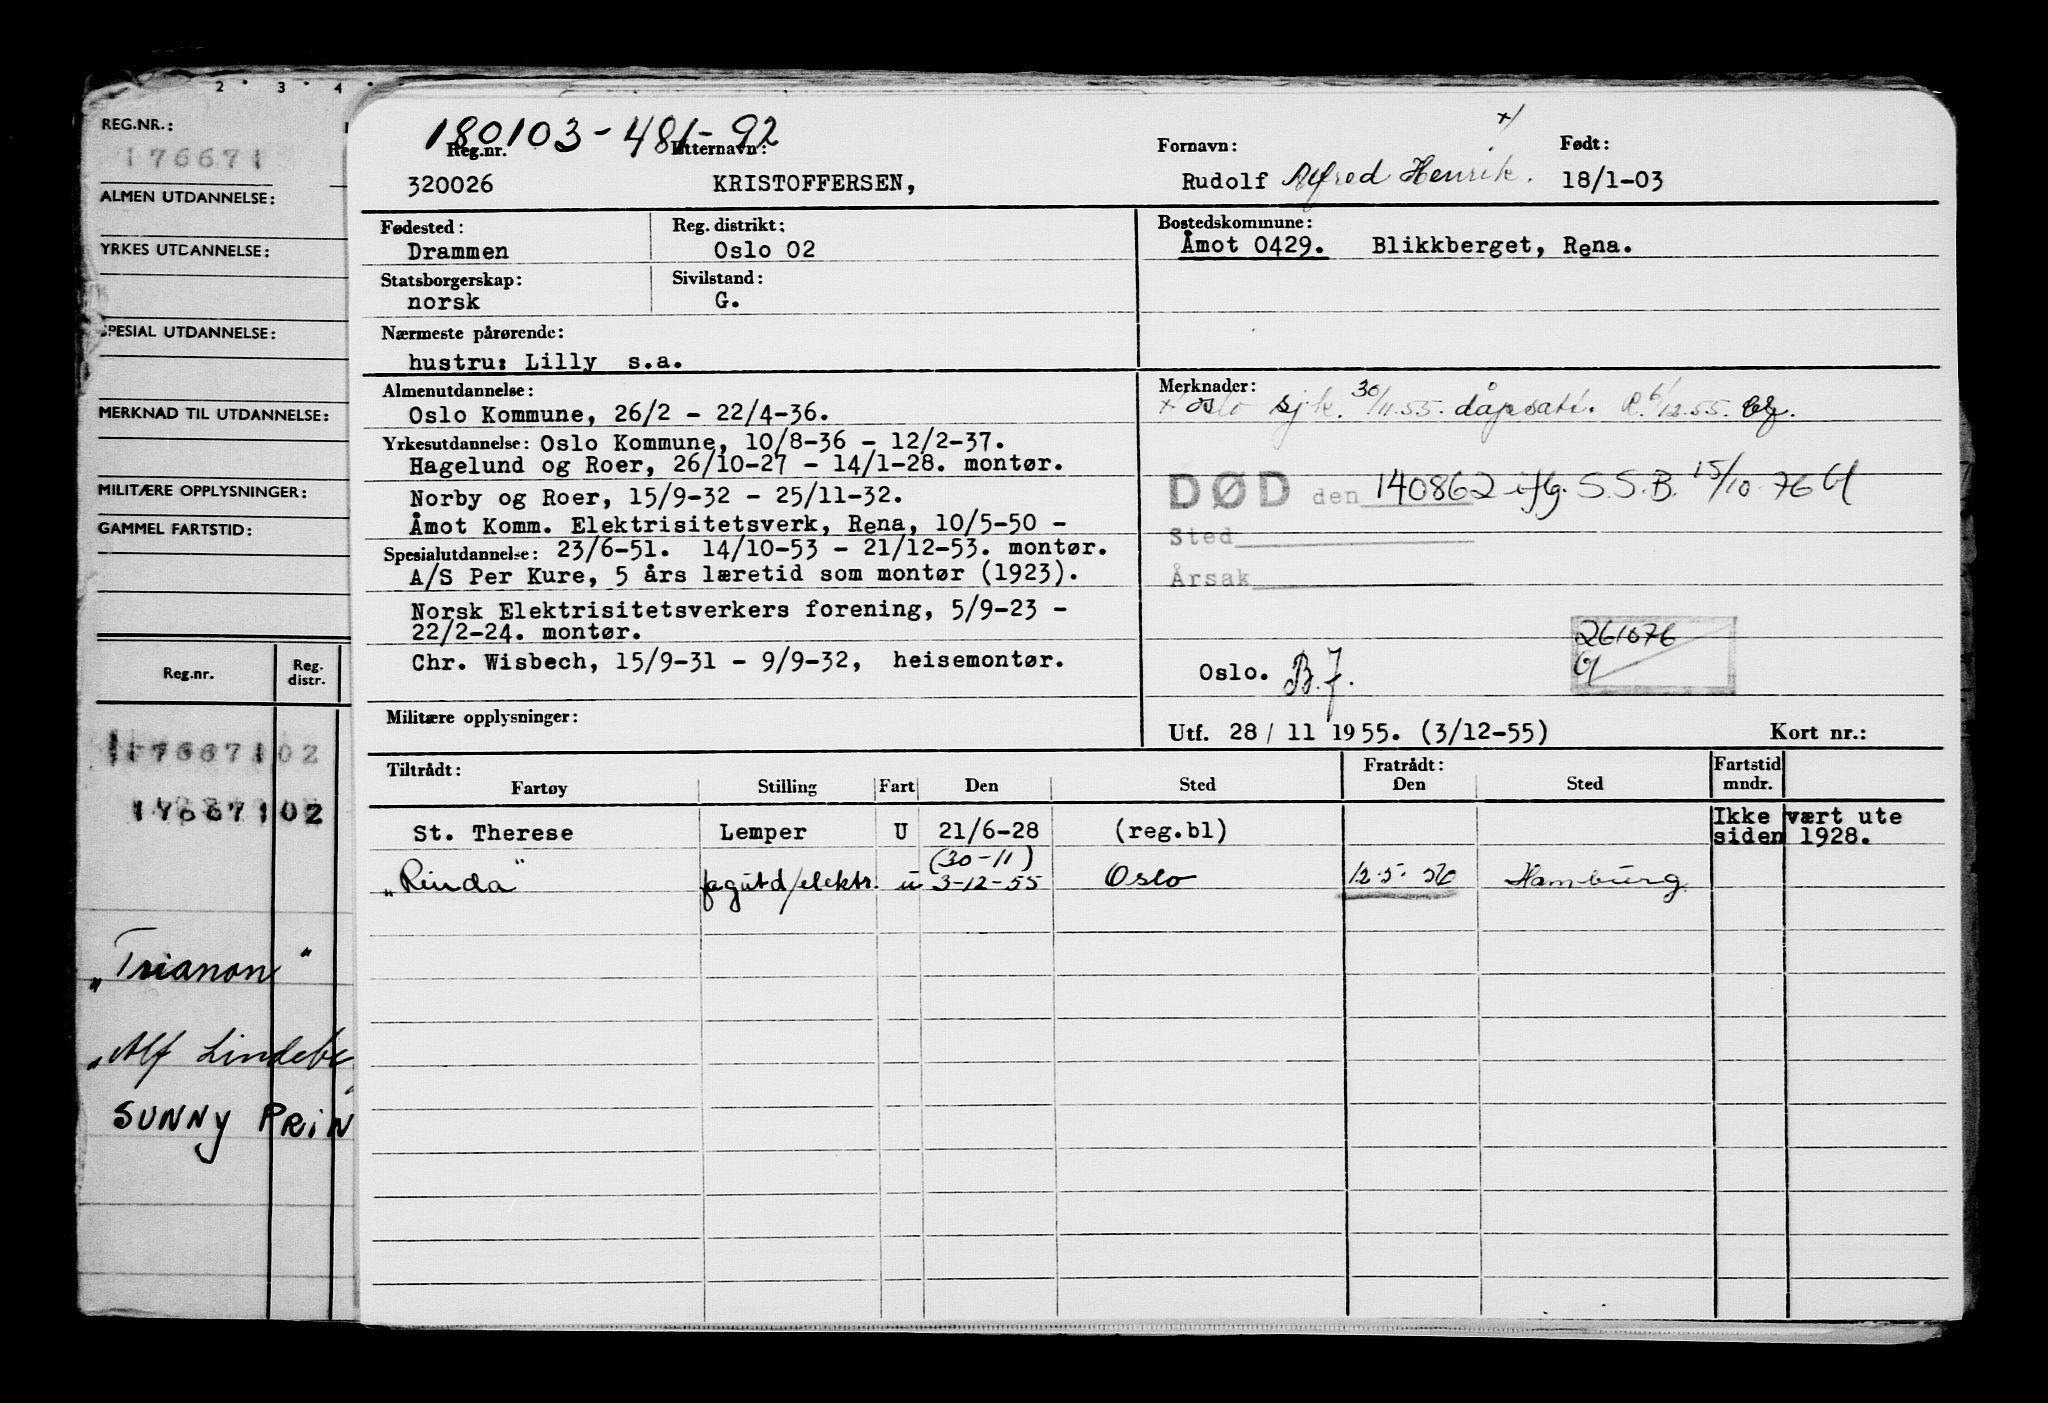 2 · 3 · 4 ·
REG.NR.:
176671
ALMEN UTDANNELSE:
YRKES UTDANNELSE:
SPESIAL UTDANNELSE:
MERKNAD TIL UTDANNELSE:
MILITÆRE OPPLYSNINGER:
GAMMEL FARTSTID:
Reg.nr. Reg. distr.
17667102
17667102
„Trianon"
„Alf Lindebe
SUNNY PRIN
180103-481-92
Reg.nr. Etternavn: Fornavn: x/ Født:
320026 KRISTOFFERSEN, Rudolf Alfred Henrik. 18/1-03
Fødested: Reg. distrikt: Bostedskommune:
Drammen Oslo 02 Åmot 0429. Blikkberget, Rena.
Statsborgerskap: Sivilstand:
norsk G.
Nærmeste pårørende:
hustru: Lilly s.a.
Almenutdannelse:
Oslo Kommune, 26/2 - 22/4-36.
Yrkesutdannelse: Oslo Kommune, 10/8-36 - 12/2-37.
Hagelund og Roer, 26/10-27 - 14/1-28. montør.
Norby og Roer, 15/9-32 - 25/11-32.
Åmot Komm. Elektrisitetsverk, Rena, 10/5-50 -
Spesialutdannelse: 23/6-51. 14/10-53 - 21/12-53. montør.
A/S Per Kure, 5 års læretid som montør (1923).
Norsk Elektrisitetsverkers forening, 5/9-23 -
22/2-24. montør.
Chr. Wisbech, 15/9-31 - 9/9-32, heisemontør.
Militære opplysninger:
Merknader:
x oslo sjk. 30/11.55. dåpsatt. R. 6/12.55.
DØD den 140862 iflg. S.S.B. 15/10-76
Sted
Årsak
261076
Oslo. B.J.
Utf. 28/11 1955. (3/12-55) Kort nr.:
Tiltrådt: Fratrådt: Fartstid
Fartøy Stilling Fart Den Sted Den Sted mndr.
St. Therese Lemper U 21/6-28 (reg.bl) Ikke vært ute
siden 1928.
(30-11)
„Rinda" fagutd/elektr. u 3-12-55 Oslo 12-5-56 Hamburg